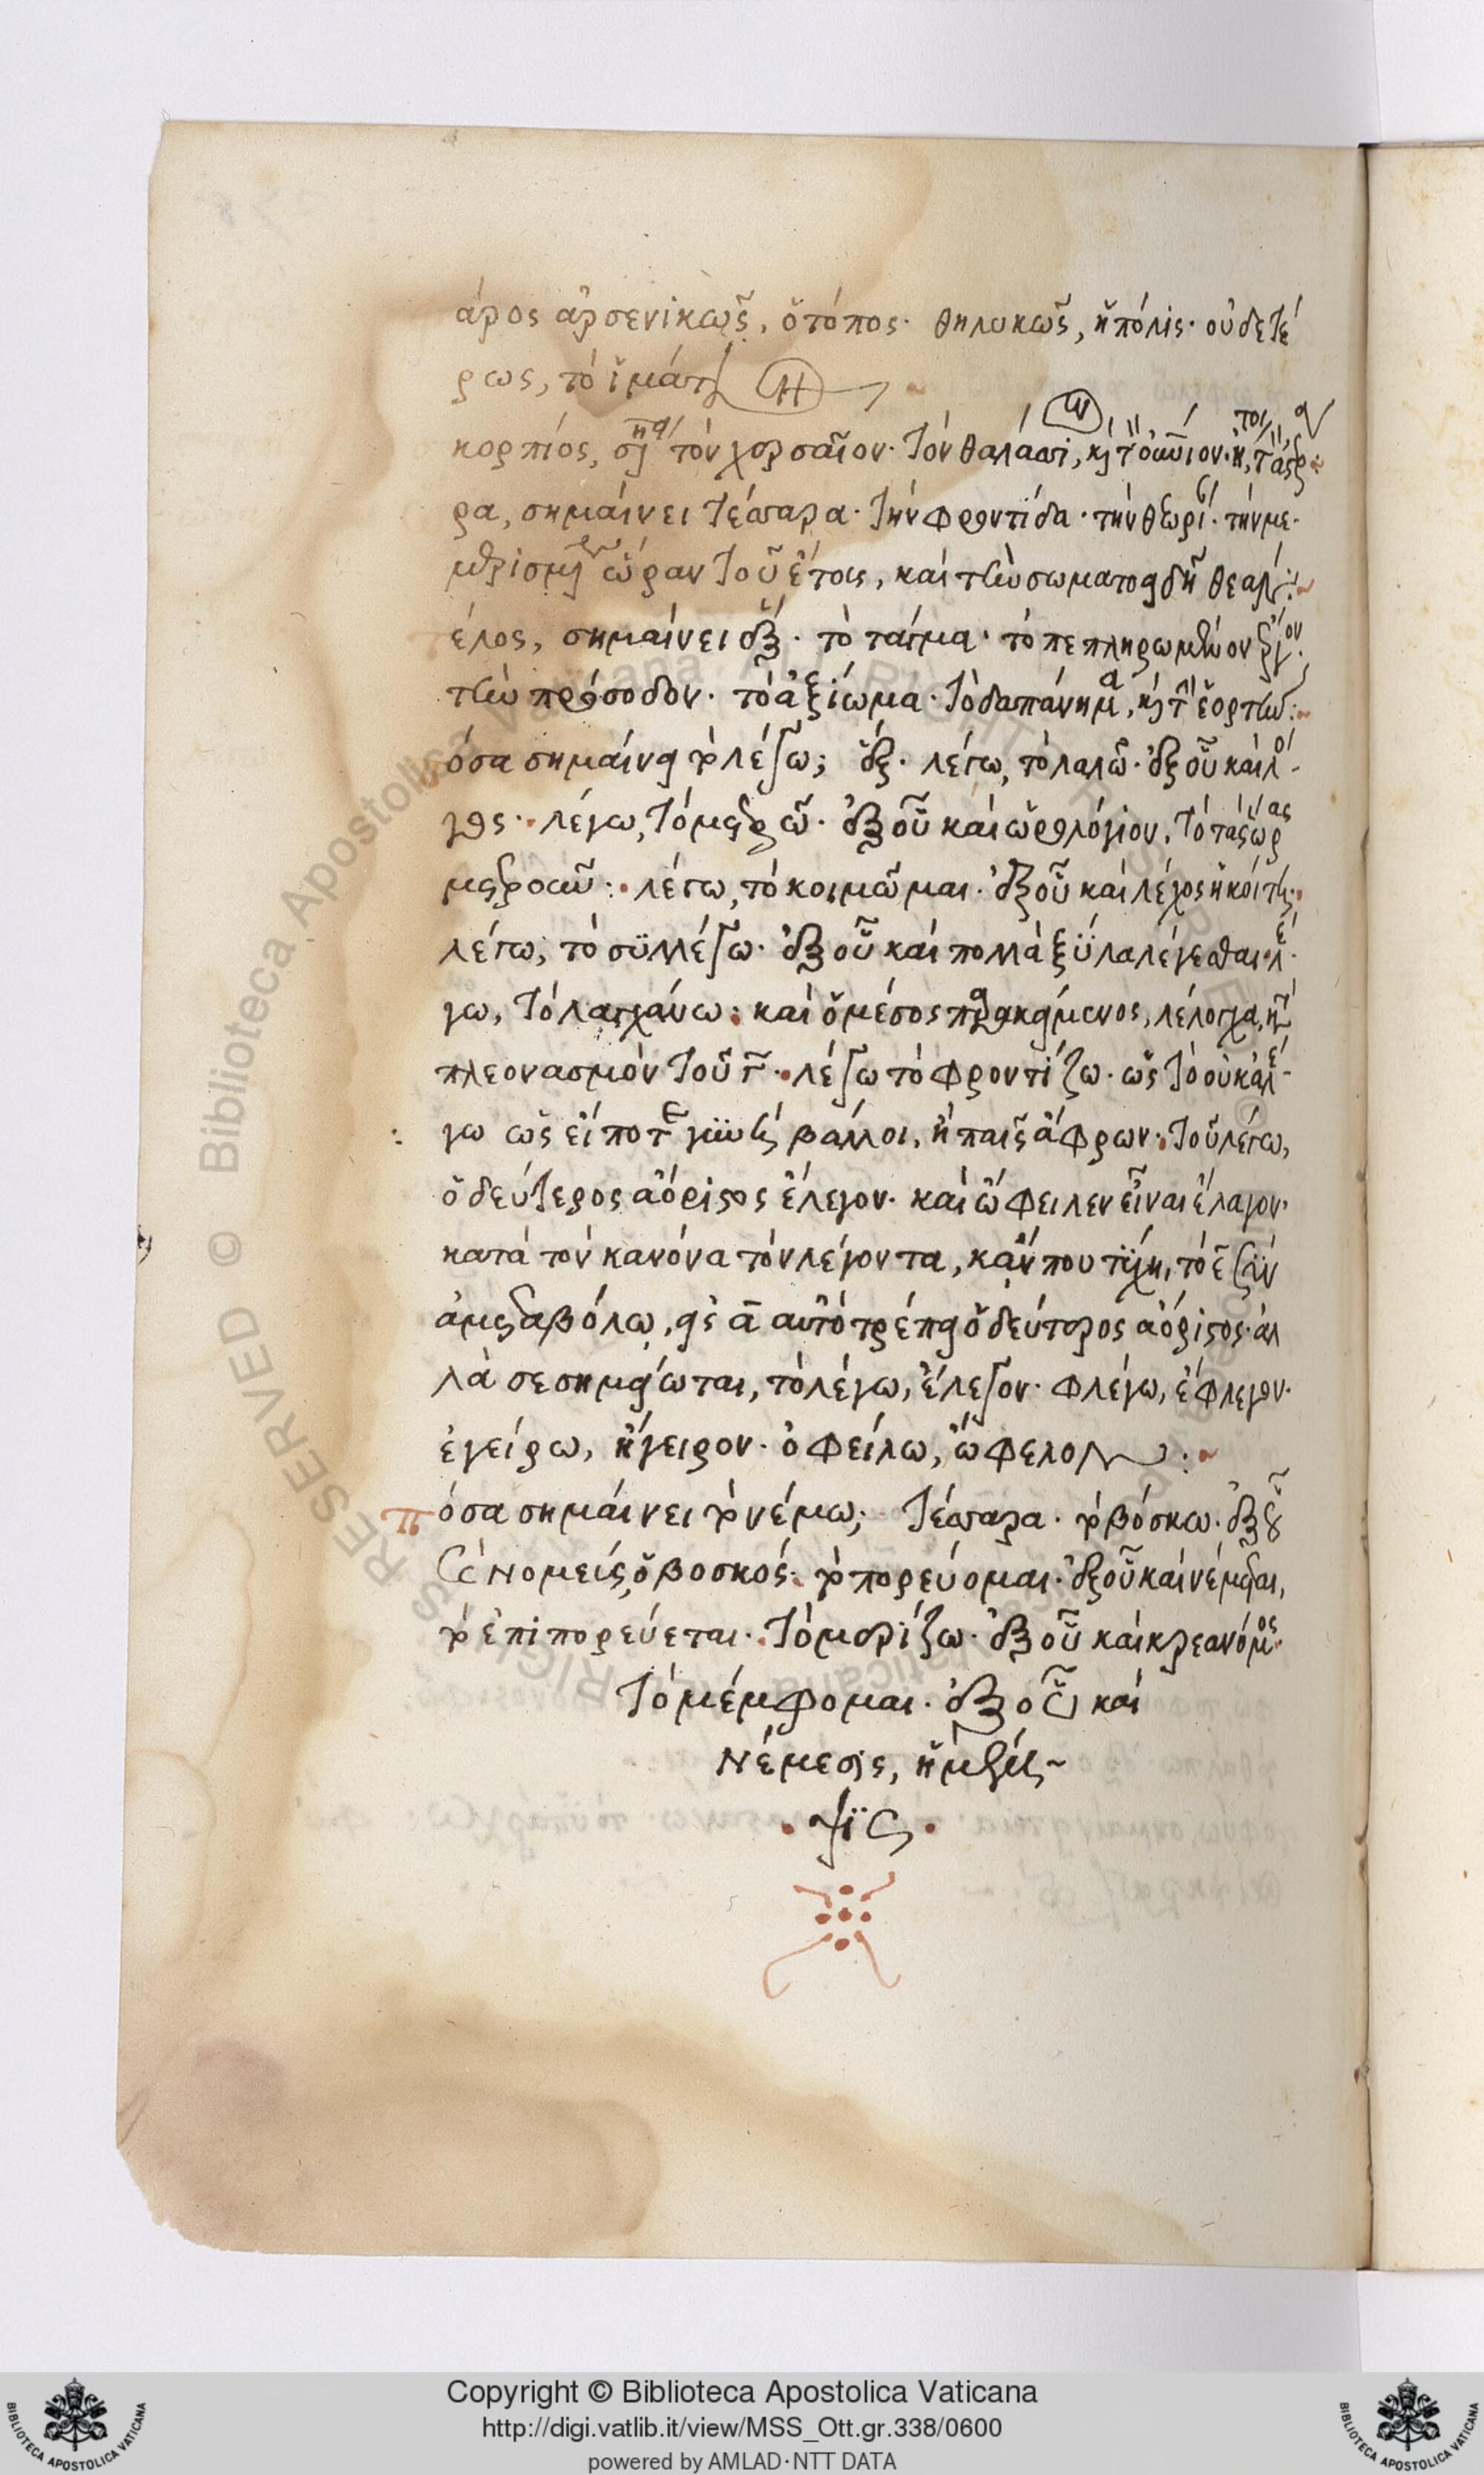 άρος ἀρσενικῶς, ὁ τόπος· θηλυκῶς, ἡ πόλις· οὐδετέ
ρως, τὸ ἱμάτι
κορπίος, τὸν χερσαῖον· τὸν θαλάσσι, καὶ
ρα, σημαίνει τέσσαρα· τὴν φροντίδα· τὴν θεωρί· τὴν με
ὥραν τοῦ ἔτους, καὶ τὴν σώματος
έλος, σημαίνει ἕξ· τὸ τάγμα· τὸ πεπληρωμένον ἔργον·
τὴν πρόσοδον· τὸ ἀξίωμα· τὸ δαπάνημα, καὶ τὴν ἑορτήν:
όσα σημαίνει τὸ λέγω; ἕξ· λέγω, τὸ λαλῶ· ἐξ οὗ καὶ λό
γος· λέγω, τὸ μετρῶ· ἐξ οὗ καὶ ὡρολόγιον, τὸ τὰς ὥρας
μετροῦν: λέγω, τὸ κοιμῶμαι· ἐξ οὗ καὶ λέχος ἡ κοίτη·
λέγω, τὸ συλλέγω· ἐξ οὗ καὶ πολλὰ ξύλα λέγεσθαι· λέ
γω, τὸ λαγχάνω: καὶ ὁ μέσος παρακείμενος, λέλογχα,
πλεονασμὸν τοῦ γ· λέγω τὸ φροντίζω· ὡς τὸ οὐκ ἀλέ
γω ὡς εἴ ποτε γυνή βάλλοι, ἢ παῖς ἄφρων· τοῦ λέγω,
ὁ δεύτερος ἀόριστος ἔλεγον· καὶ ὤφειλεν εἶναι ἔλαγον·
κατὰ τὸν κανόνα τὸν λέγοντα, κἄν που τύχη, τὸ ε σὺν
ἀμεταβόλω, εἰς α αὐτὸ τρέπει ὁ δεύτερος ἀόριστος· ἀλ
λὰ σεσημείωται, τὸ λέγω, ἔλεγον· φλέγω, ἔφλεγον·
ἐγείρω, ἤγειρον· ὀφείλω, ὤφελον:
πόσα σημαίνει τὸ νέμω; τέσσαρα· τὸ βόσκω· ἐξ οὗ
καὶ νομεύς, ὁ βοσκός· τὸ πορεύομαι· ἐξ οὗ καὶ νέμεται,
τὸ ἐπιπορεύεται· τὸ μερίζω· ἐξ οὗ καὶ κρεανόμος·
τὸ μέμφομαι· ἐξ οὗ καὶ
νέμεσις, ἡ μέμψις
Copyright © Biblioteca Apostolica Vaticana
http://digi.vatlib.it/view/MSS_Ott.gr.338/0600
powered by AMLAD·NTT DATA
BIBLIOTECA APOSTOLICA VATICANA
BIBLIOTECA APOSTOLICA VATICANA